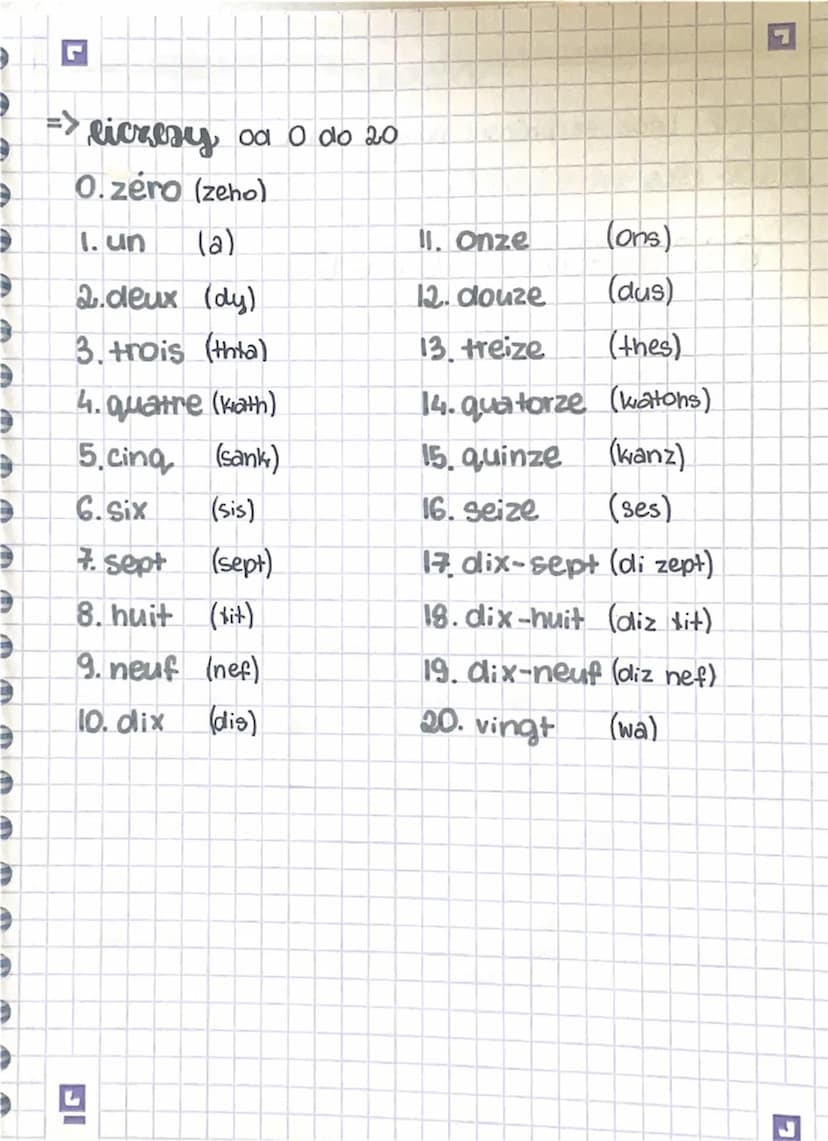 => liczby od 0 do 20
0. zéro (zeho)
1. un (a)
2. deux (dy)
3. trois (thła)
4. quatre (kath)
5. cinq (sank)
6. six (sis)
7. sept (sept)
8. huit (łit)
9. neuf (nef)
10. dix (dis)
11. onze (ons)
12. douze (dus)
13. treize (thes)
14. quatorze (katohs)
15. quinze (kanz)
16. seize (ses)
17. dix-sept (di zept)
18. dix-huit (diz łit)
19. dix-neuf (diz nef)
20. vingt (wa)